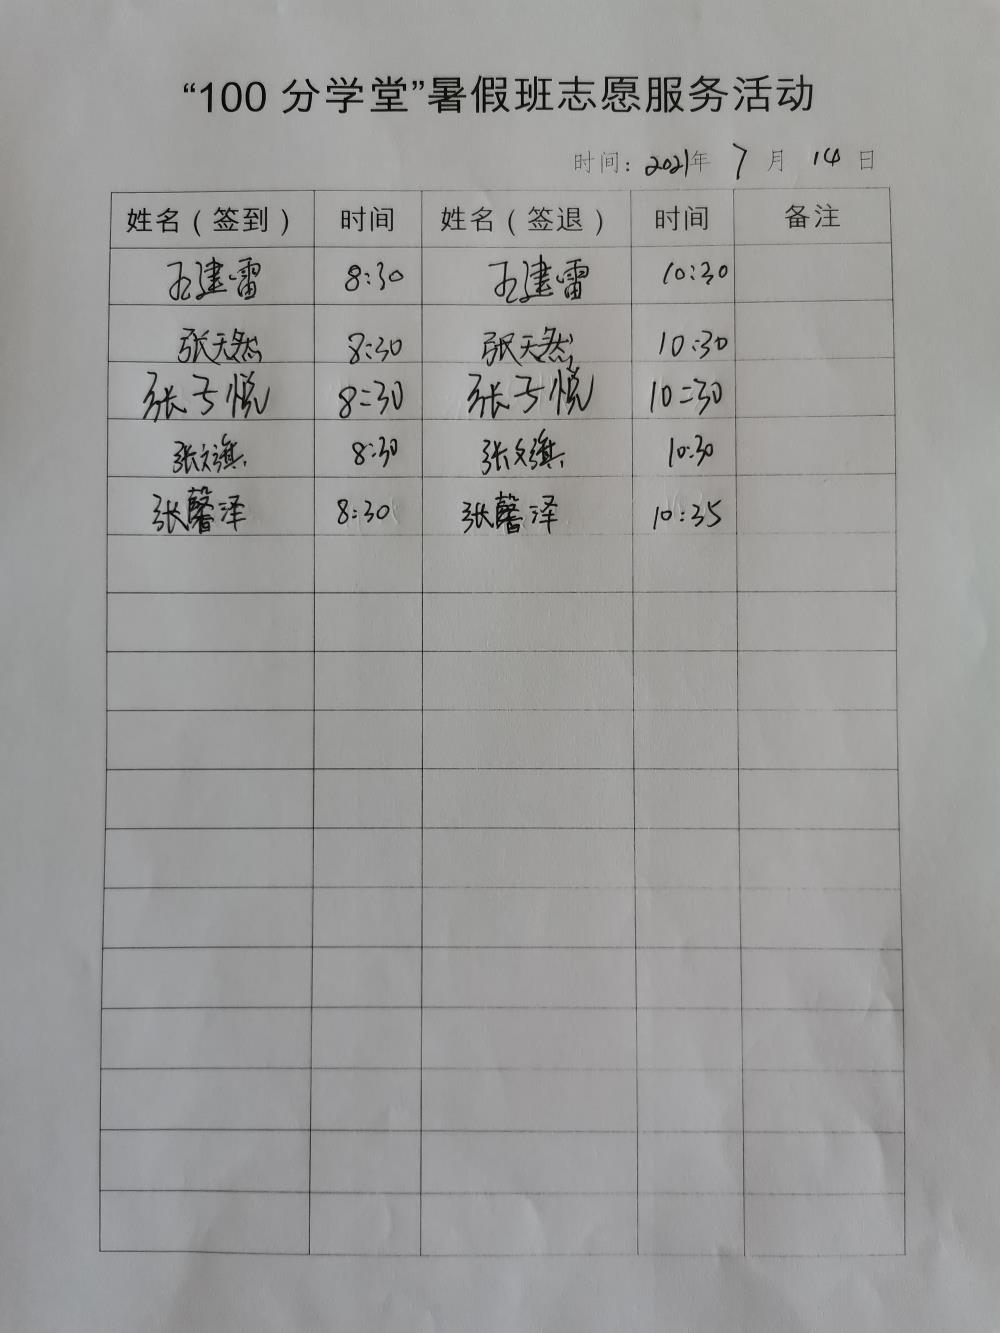 “100 分学堂”暑假班志愿服务活动
时间：2021年 7 月 14 日
姓名（签到） 时间 姓名（签退） 时间 备注
王建雷 8:30 王建雷 10:30
张天然 8:30 张天然 10:30
张子悦 8:30 张子悦 10:30
张文旗 8:30 张文旗 10:30
张馨泽 8:30 张馨泽 10:35